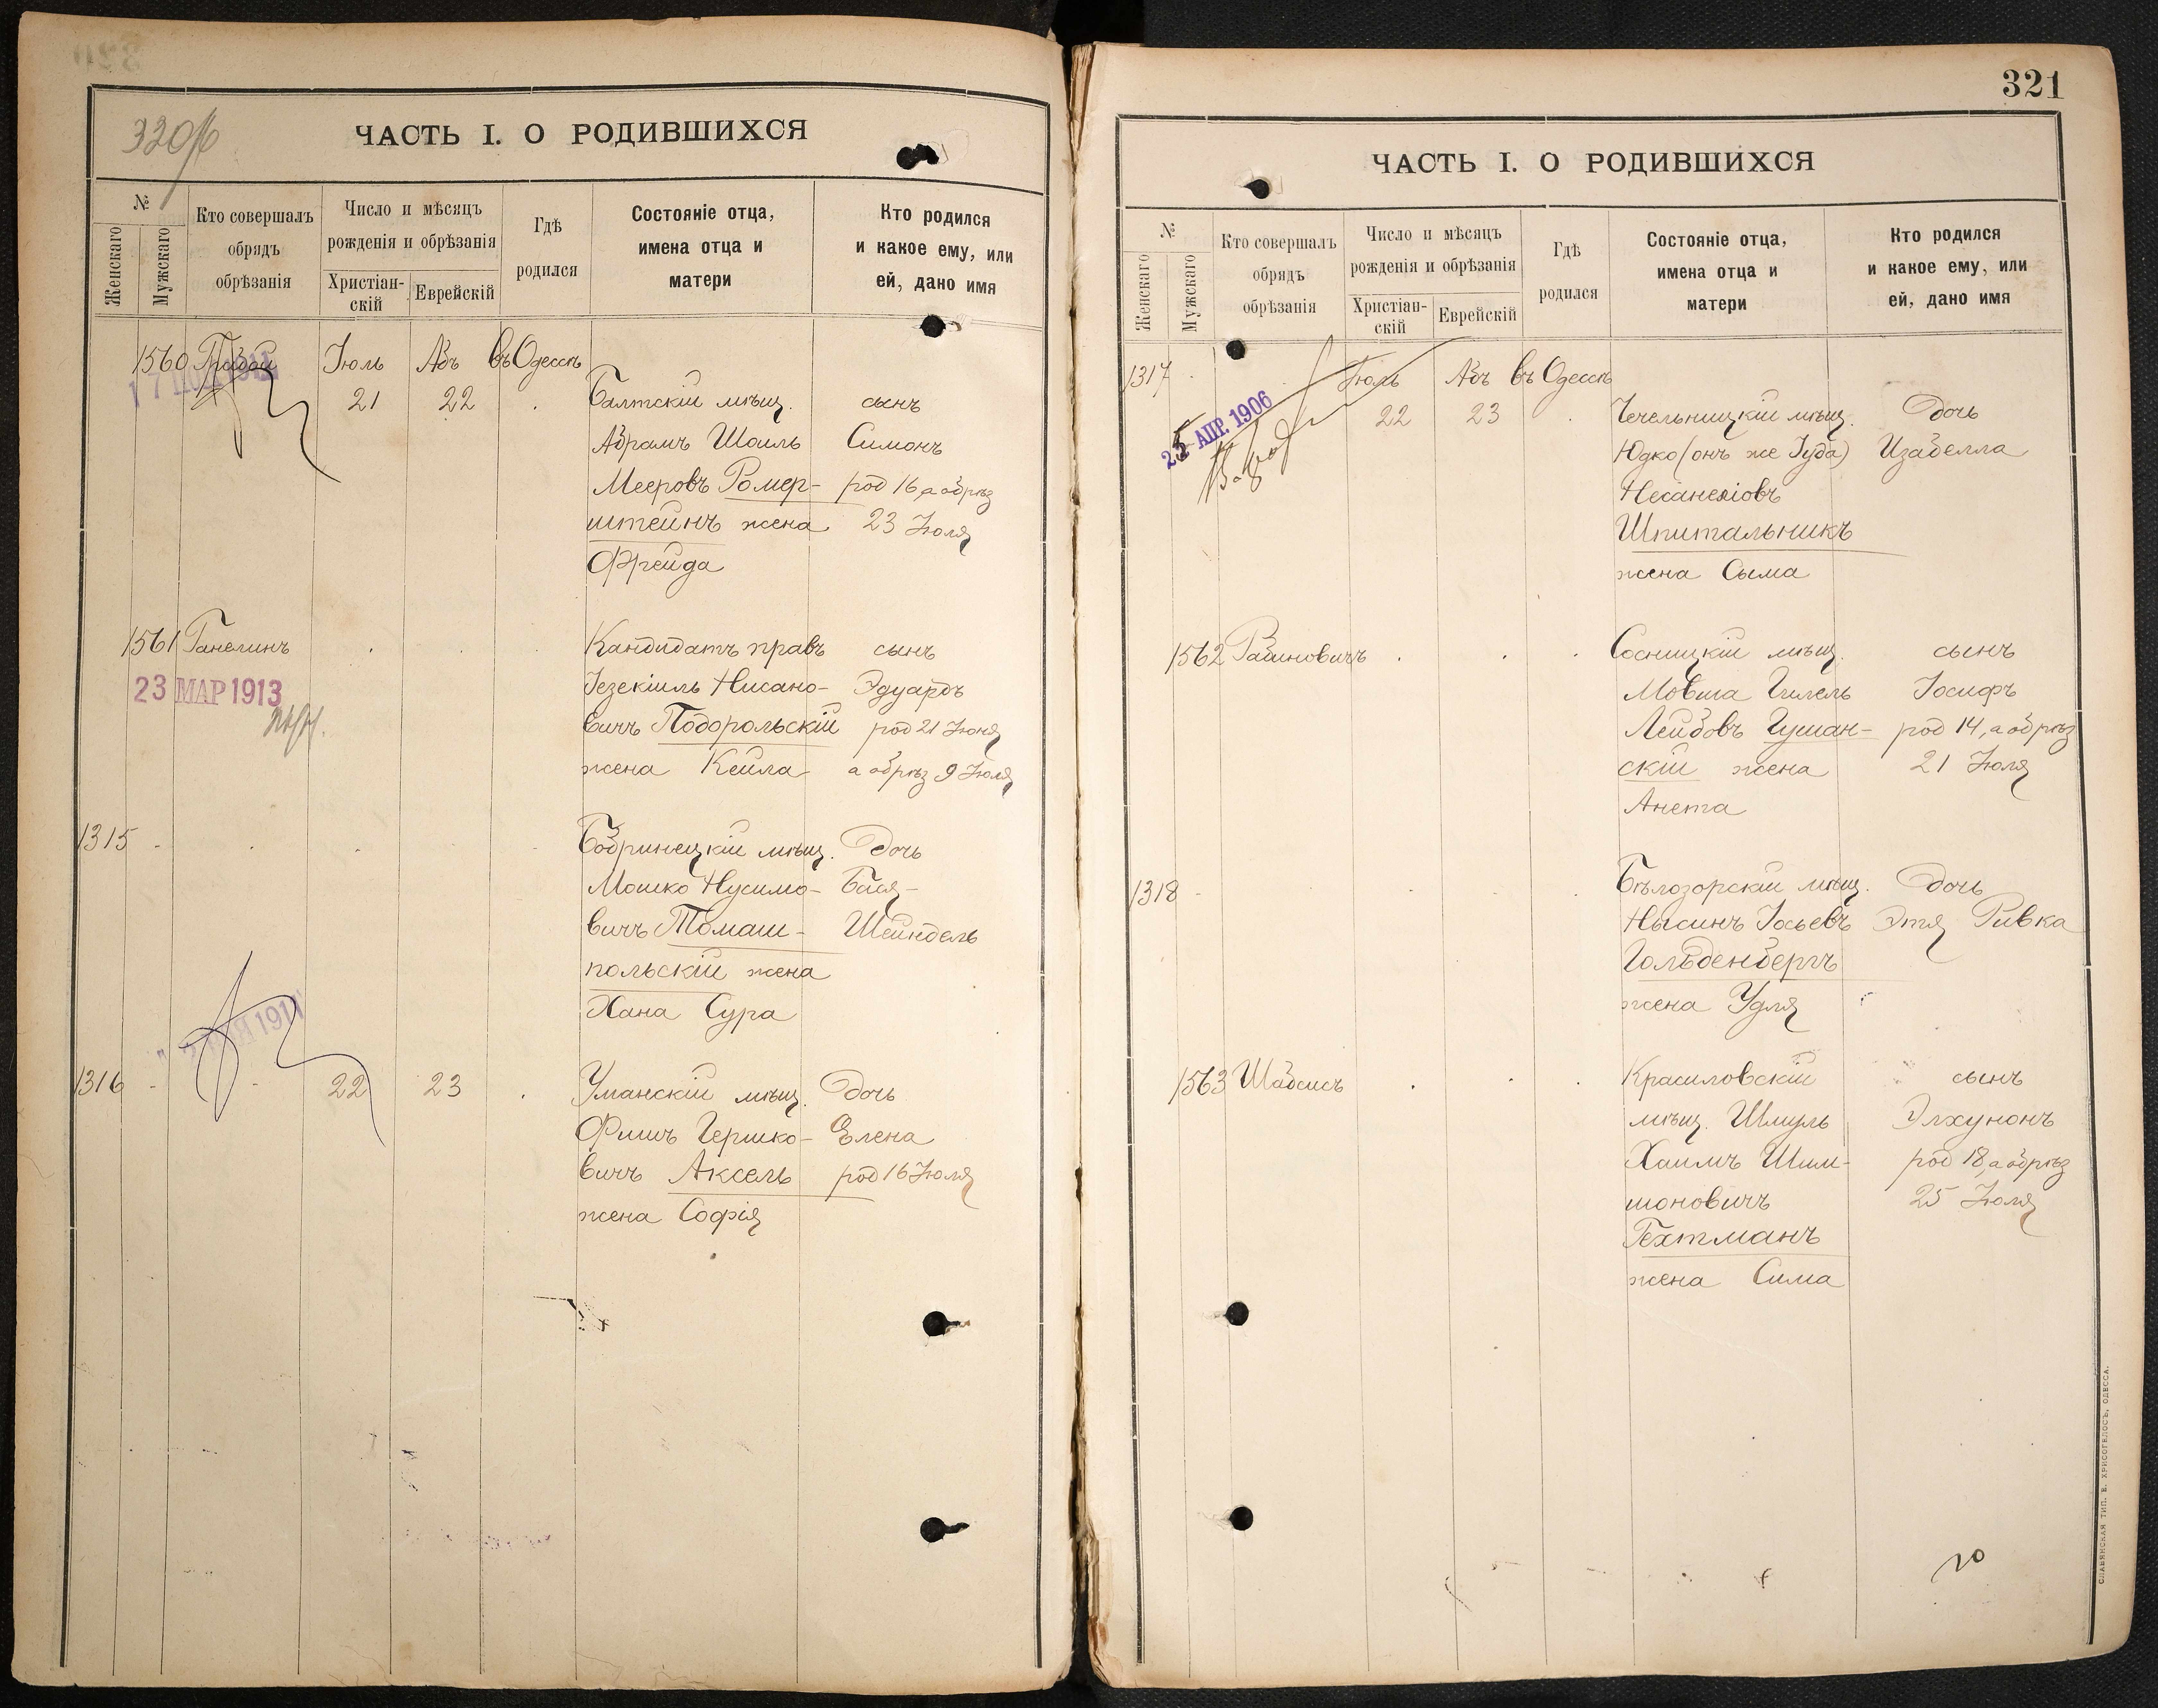 320/6
ЧАСТЬ I. О РОДИВШИХСЯ
№
Женскаго
Мужскаго
Кто совершалъ
обрядъ
обрѣзанія
Число и мѣсяцъ
рожденія и обрѣзанія
Христіан-
скій
Еврейскій
Гдѣ
родился
Состояніе отца,
имена отца и
матери
Кто родился
и какое ему, или
ей, дано имя
1560 Іюль Абъ въ Одессѣ
21 22 Балтскій мѣщ. сынъ
Абрамъ Шоиль Симонъ
Мееровъ Ромер- род 16, а обрѣз
штейнъ жена 23 Іюля
Фрейда
1561 Ганелинъ Кандидатъ правъ сынъ
23 МАР 1913
Іезекіиль Нисано- Эдуардъ
вичъ Подорольскій род 21 Іюня
жена Кейла а обрѣз 9 Іюля
1315 Бобринецкій мѣщ. Дочь
Мошко Нусимо- Бася-
вичъ Томаш- Шейндель
польскій жена
Хана Сура
1911
1316 22 23 Уманскій мѣщ. Дочь
Фишъ Гершко- Елена
вичъ Аксель род 16 Іюля
жена Софія
321
ЧАСТЬ I. О РОДИВШИХСЯ
№
Женскаго
Мужскаго
Кто совершалъ
обрядъ
обрѣзанія
Число и мѣсяцъ
рожденія и обрѣзанія
Христіан-
скій
Еврейскій
Гдѣ
родился
Состояніе отца,
имена отца и
матери
Кто родился
и какое ему, или
ей, дано имя
1317 Іюль Абъ въ Одессѣ
АПР. 1906
22 23 Чечельницкій мѣщ. Дочь
Юдко (онъ же Іуда) Изабелла
Несанеліовъ
Шпитальникъ
жена Сыма
1562 Рабиновичъ Сосницкій мѣщ. сынъ
Мовша Гилель Іосифъ
Лейбовъ Гушан- род 14, а обрѣз
скій жена 21 Іюля
Анета
1318 Бѣлозорскій мѣщ. Дочь
Нысинъ Іосьевъ Этя Ривка
Гольденбергъ
жена Удля
1563 Шабсисъ Красиловскій сынъ
мѣщ. Шмуль Элхунонъ
Хаимъ Шим- род 18, а обрѣз
шоновичъ 25 Іюля
Гехтманъ
жена Сима
СЛАВЯНСКАЯ ТИП. Е. ХРИСОГЕЛОСЪ, ОДЕССА.